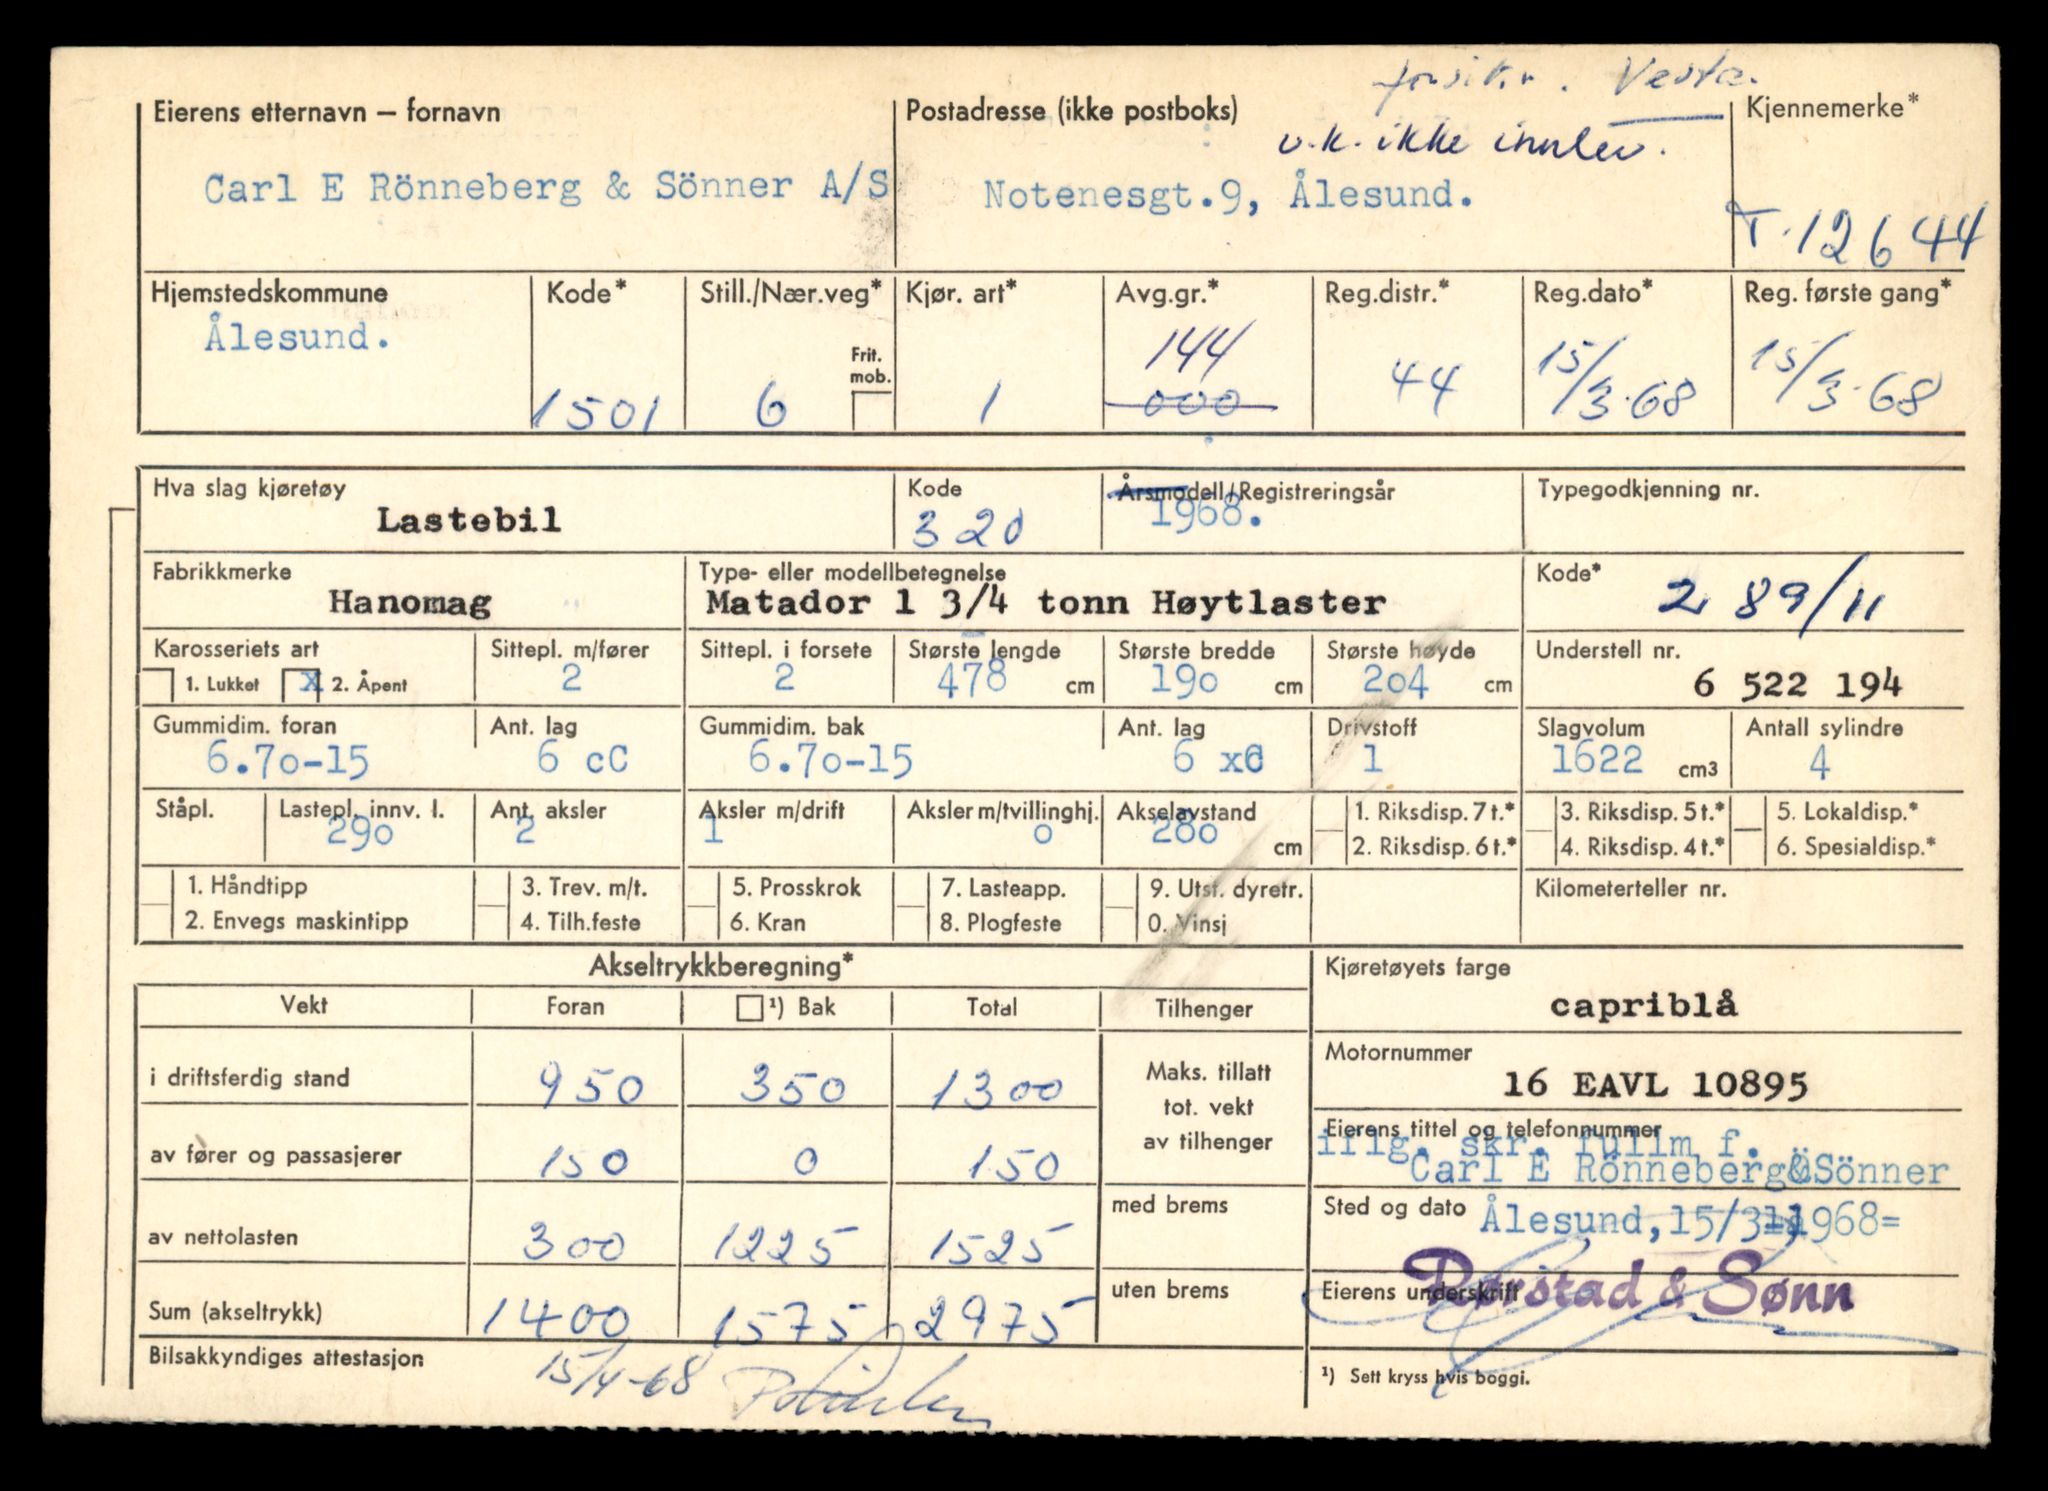 forsikr. Vesta.
Eierens etternavn – fornavn Postadresse (ikke postboks) Kjennemerke*
v.k. ikke innlev.
Carl E Rönneberg & Sönner A/S Notenesgt.9, Ålesund.
T.12644
Hjemstedskommune Kode* Still./Nær.veg* Kjør. art* Avg.gr.* Reg.distr.* Reg.dato* Reg. første gang*
Ålesund. 144 15/3.68 15/3.68
Frit. mob.
1501 6 1 000 44
Hva slag kjøretøy Kode Årsmodell/Registreringsår Typegodkjenning nr.
Lastebil 320 1968.
Fabrikkmerke Type- eller modellbetegnelse Kode*
Hanomag Matador 1 3/4 tonn Høytlaster 289/11
Karosseriets art Sittepl. m/fører Sittepl. i forsete Største lengde Største bredde Største høyde Understell nr.
1. Lukket x 2. Åpent 2 2 478 cm 190 cm 204 cm 6 522 194
Gummidim. foran Ant. lag Gummidim. bak Ant. lag Drivstoff Slagvolum Antall sylindre
6.70-15 6 cC 6.70-15 6 xC 1 1622 cm3 4
Ståpl. Lastepl. innv. l. Ant. aksler Aksler m/drift Aksler m/tvillinghj. Akselavstand 1. Riksdisp. 7 t.* 3. Riksdisp. 5 t.* 5. Lokaldisp.*
290 2 1 0 280 cm 2. Riksdisp. 6 t.* 4. Riksdisp. 4 t.* 6. Spesialdisp.*
1. Håndtipp 3. Trev. m/t. 5. Prosskrok 7. Lasteapp. 9. Utst. dyretr. Kilometerteller nr.
2. Envegs maskintipp 4. Tilh.feste 6. Kran 8. Plogfeste 0. Vinsj
Akseltrykkberegning* Kjøretøyets farge
Vekt Foran ¹) Bak Total Tilhenger capriblå
Motornummer
i driftsferdig stand 950 350 1300 Maks. tillatt 16 EAVL 10895
tot. vekt
Eierens tittel og telefonnummer
av fører og passasjerer 150 0 150 av tilhenger
iflg. skr. fullm f.
Carl E Rönneberg & Sönner
med brems Sted og dato
av nettolasten 300 1225 1525 Ålesund, 15/3 1968=
uten brems Eierens underskrift Rørstad & Sønn
Sum (akseltrykk) 1400 1575 2975
Bilsakkyndiges attestasjon 15/4-68
¹) Sett kryss hvis boggi.